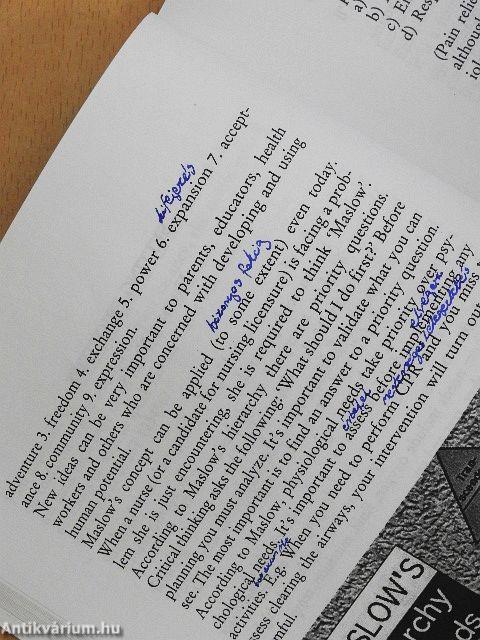 a)
b)
c) E
d) Res
(Pain relie
althoug
adventure 3. freedom 4. exchange 5. power 6. expansion 7. accept-
kifejezés
ance 8. community 9. expression.
New ideas can be very important to parents, educators, health
workers and others who are concerned with developing and using
human potential.
bizonyos fokig
Maslow's concept can be applied (to some extent) even today.
When a nurse (or a candidate for nursing licensure) is facing a prob-
lem she is just encountering, she is required to think 'Maslow'.
According to Maslow's hierarchy there are priority questions.
Critical thinking asks the following: 'What should I do first?' Before
planning you must analyze. It's important to validate what you can
see. The most important is to find an answer to a priority question.
According to Maslow, physiological needs take priority over psy-
chological needs. It's important to assess before implementing any
activities. E.g. When you need to perform CPR and you miss
ssess clearing the airways, your intervention will turn out
mful.
SLOW'S
rchy
ds
Antikvárium.hu